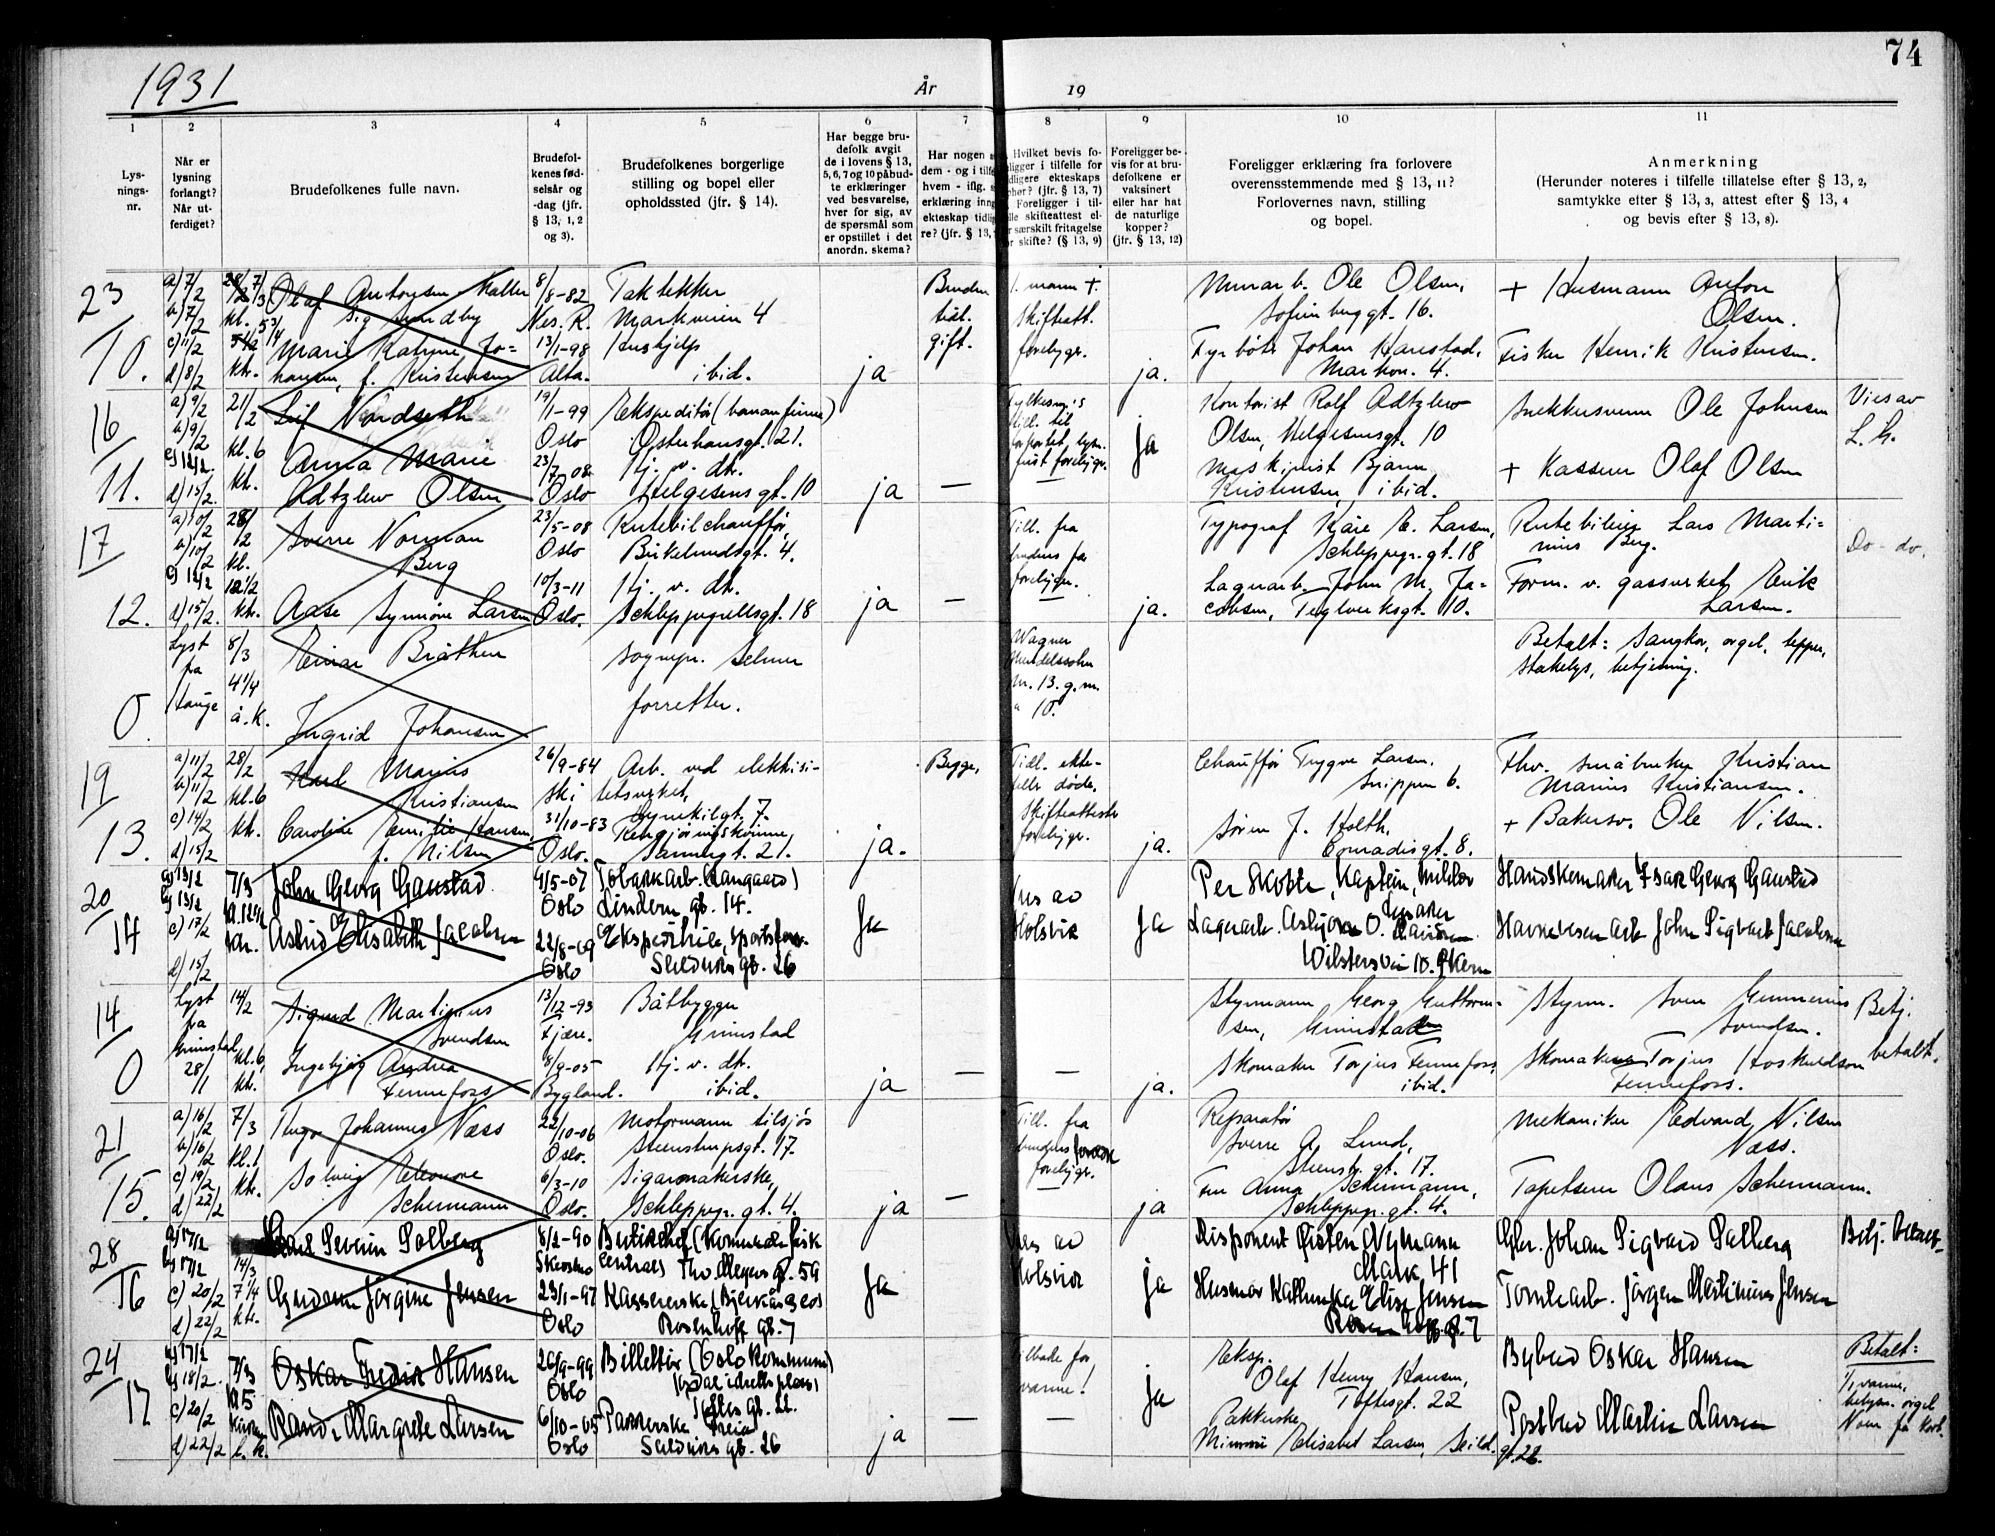 1931
År
19
74
1
2
3
4
5
6
7
8
9
10
11
Lys-
nings-
nr.
Når er
lysning
forlangt?
Når ut-
ferdiget?
Brudefolkenes fulle navn.
Brudefol-
kenes fød-
selsår og
-dag (jfr.
§ 13, 1, 2
og 3).
Brudefolkenes borgerlige
stilling og bopel eller
opholdssted (jfr. § 14).
Har begge bru-
defolk avgit
de i lovens § 13,
5, 6, 7 og 10 påbud-
te erklæringer
ved besvarelse,
hver for sig, av
de spørsmål som
er opstillet i det
anordn. skema?
Har nogen
dem - og i
hvem - iflg.
erklæring inng
ekteskap tidlig
re? (jfr. § 13,
Hvilket bevis fo-
ligger i tilfelle for
dligere ekteskaps
(jfr. § 13, 7)
Foreligger i til-
skifteattest el-
særskilt fritagelse
skifte? (§ 13, 9)
Foreligger be-
vis for at bru-
defolkene er
vaksinert
eller har hat
de naturlige
kopper?
(jfr. § 13, 12)
Foreligger erklæring fra forlovere
overensstemmende med § 13, 11?
Forlovernes navn, stilling
og bopel.
Anmerkning
(Herunder noteres i tilfelle tillatelse efter § 13, 2,
samtykke etter § 13, 3, attest efter § 13, 4
og bevis efter § 13, 8).
23
10.
a) 7/2
b) 7/2
c) 11/2
d) 8/2
Olaf Antonsen
Marie Katrine Jo-
hansen, f. Kristensen
8/8-82
Nes. R.
13/1-98
Alta.
Taktekker
Markveien 4
Hushjelp
ibid.
ja
Bruden
tidl.
gift.
1. mann +.
Skifteatt.
foreligger.
ja.
Murarb. Ole Olsen,
Sofienberggt. 16.
Fyrbøter Johan Hanestad,
Markv. 4.
+ Husmann Anton
Olsen.
Fisker Henrik Kristensen.
16
11.
a) 9/2
b) 9/2
c) 12/2
d) 15/2.
21/2
kl. 6
kk.
Leif Nordseth
Anna Marie
Adtzlew Olsen
19/1-99
Oslo
23/7-08
Oslo
Ekspeditør (bananfirma)
Osterhausgt. 21.
Hj. v. dk.
Helgesensgt. 10
ja
—
ja
Kontorist Rolf Adtzlew
Olsen, Helgesensgt. 10
Maskinist Bjarne
Kristensen, ibid.
Snekkersvenn Ole Johnsen
+ Kasserer Olaf Olsen
Vies av
L. H.
17
12.
a) 10/2
b) 10/2
c) 12/2
d) 15/2.
28/2
kl.
kk.
Sverre Norman
Berg
Aase Synnöve Larsen
23/5-08
Oslo
10/3-11
Oslo.
Rutebilchauffør,
Birkelundsgt. 4.
Hj. v. dk.
Schleppegrellsgt. 18
ja
—
Till. fra
brudens far
foreligger.
—
ja.
Typograf Kåre E. Larsen,
Schleppegr. gt. 18
Lagerarb. John M. Ja-
cobsen, Teglverksgt. 10.
Rutebileier Lars Marti-
nius Berg.
Form. v. gassverket Erik
Larsen.
Do - do.
0.
Lyst
fra
Stange
8/3
4 1/4
å. K.
Einar Bråthen
Ingrid Johansen
Sognepr. Selmer
forretter.
Wagner
Mendelssohn
nr. 13. g. m.
10.
Betalt: Sangkor, orgel, tepper,
stakelys, betjening.
19
13.
a) 11/2
b) 11/2
c) 14/2
d) 15/2
28/2
kl. 6
kk.
Karl Marius
Kristiansen
Caroline Emilie Hansen,
f. Nilsen
26/9-84
Ski
31/10-83
Oslo.
Arb. ved elektrisi-
tetsverket,
Dynekilgt. 7.
Rengjøringskvinne,
Sannergt. 21.
ja.
Begge,
Tidl. ekte-
feller døde,
Skifteattester
foreligger.
ja.
Chauffør Trygve Larsen,
Snippen 6.
Søren J. Holth,
Conradisgt. 8.
Fhv. småbruker Kristian
Marius Kristiansen.
+ Bakersv. Ole Nilsen.
20
14
a) 13/2
b) 13/2
c) 17/2
d) 15/2
7/3
John Georg Gaustad
Astrid Elisabeth Jacobsen
9/5-07
Oslo
22/8-09
Oslo
Tobakkarb. (Langaard)
Lindern gt. 14.
Ekspeditrise, sportsforr.
Seilduks gt. 26
Ja
Vies av
Holsvik
Ja
Per Skotte, Kaptein, Militær
Lagerarb. Asbjørn O. Davidsen
Wilstersvei 10. Skøyen
Handskemaker Isak Georg Gaustad
Havnevesen arb John Sigvart Jacobsen
14
0
Lyst
fra
Grimstad
28/1
14/2
kl. 6,
kk.
Sigurd Martinius
Svendsen
Ingebjørg Andrea
Fennefoss
13/12-93
Fjære.
8/9-05
Bygland.
Båtbygger
Grimstad
Hj. v. dk.
ibid.
ja
—
—
ja.
Styrmann Georg Guttorm-
sen, Grimstad
Skomaker Torjus Fennefoss,
ibid.
Styrm. Sven Gumerius
Svendsen.
Skomaker Torjus Hoskuldson
Fennefoss.
Betj.
betalt.
21
15.
a) 16/2
b) 16/2
c) 19/2
d) 22/2
7/3
kl. 1
kk.
Hugo Johannes Næss
Solveig Eleonore
Schermann
22/10-06
Oslo.
6/3-10
Oslo.
Motormann tilsjøs
Steenstrupsgt. 17.
Sigarmakerske,
Schleppegr. gt. 4.
ja
—
Till. fra
brudens foreldre
foreligger.
—
ja
Reparatør
Sverre A. Lund,
Steenstr. gt. 17.
Fru Anna Schermann,
Schleppegr. gt. 4.
Mekaniker Edvard Nilsen
Næss.
Tapetserer Olaus Schermann.
28
16
a) 17/2
b) 17/2
c) 20/2
d) 22/2
14/3
7 1/4
kk.
Karl Severin Solberg
Gudrun Jørgine Jensen
8/2-90
23/1-97
Oslo
Butikksjef (Kommunale fisk
centraler) Thv. Meyers gt. 59
Kassererske (Bjerkås & co)
Rosenhoff gt. 7
Ja
Vies av
Holsvik
ja
Disponent Øisten Nymann
Mark. 41
Husmor Kathinka Elise Jensen
Rosenhoff gt. 7
Gbr. Johan Sigvard Solberg
Tomtearb. Jørgen Martinius Jensen
Betj. betalt.
24
17
a) 17/2
b) 18/2.
c) 20/2
d) 22/2
7/3
Kl 5
kirken
Oskar Fredrik Hansen
Randi Margrete Larsen
26/9-99
Oslo
6/10-05
Oslo
Billettør (Oslo Kommune)
(Dal idrettsplass)
Toftes gt. 22.
Pakkerske Freia
Seilduks gt. 26
ja
—
—
varme!
ja
Eksp.
Olaf Henry Hansen,
Toftesgt. 22
Pakkerske
Mimmi Elisabet Larsen, Seild. gt. 26.
Bybud Oskar Hansen
Postbud Martin Larsen
Betalt:
1/1 varme,
belysn. orgel